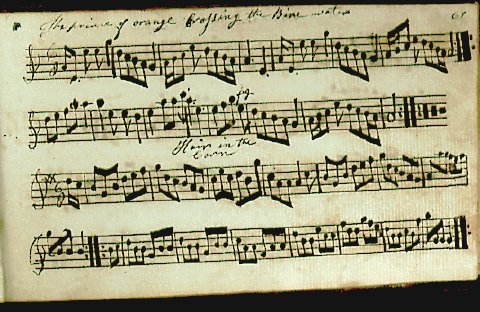 The prince of orange Crossing the Bine water
61
Hairs in the
Corn